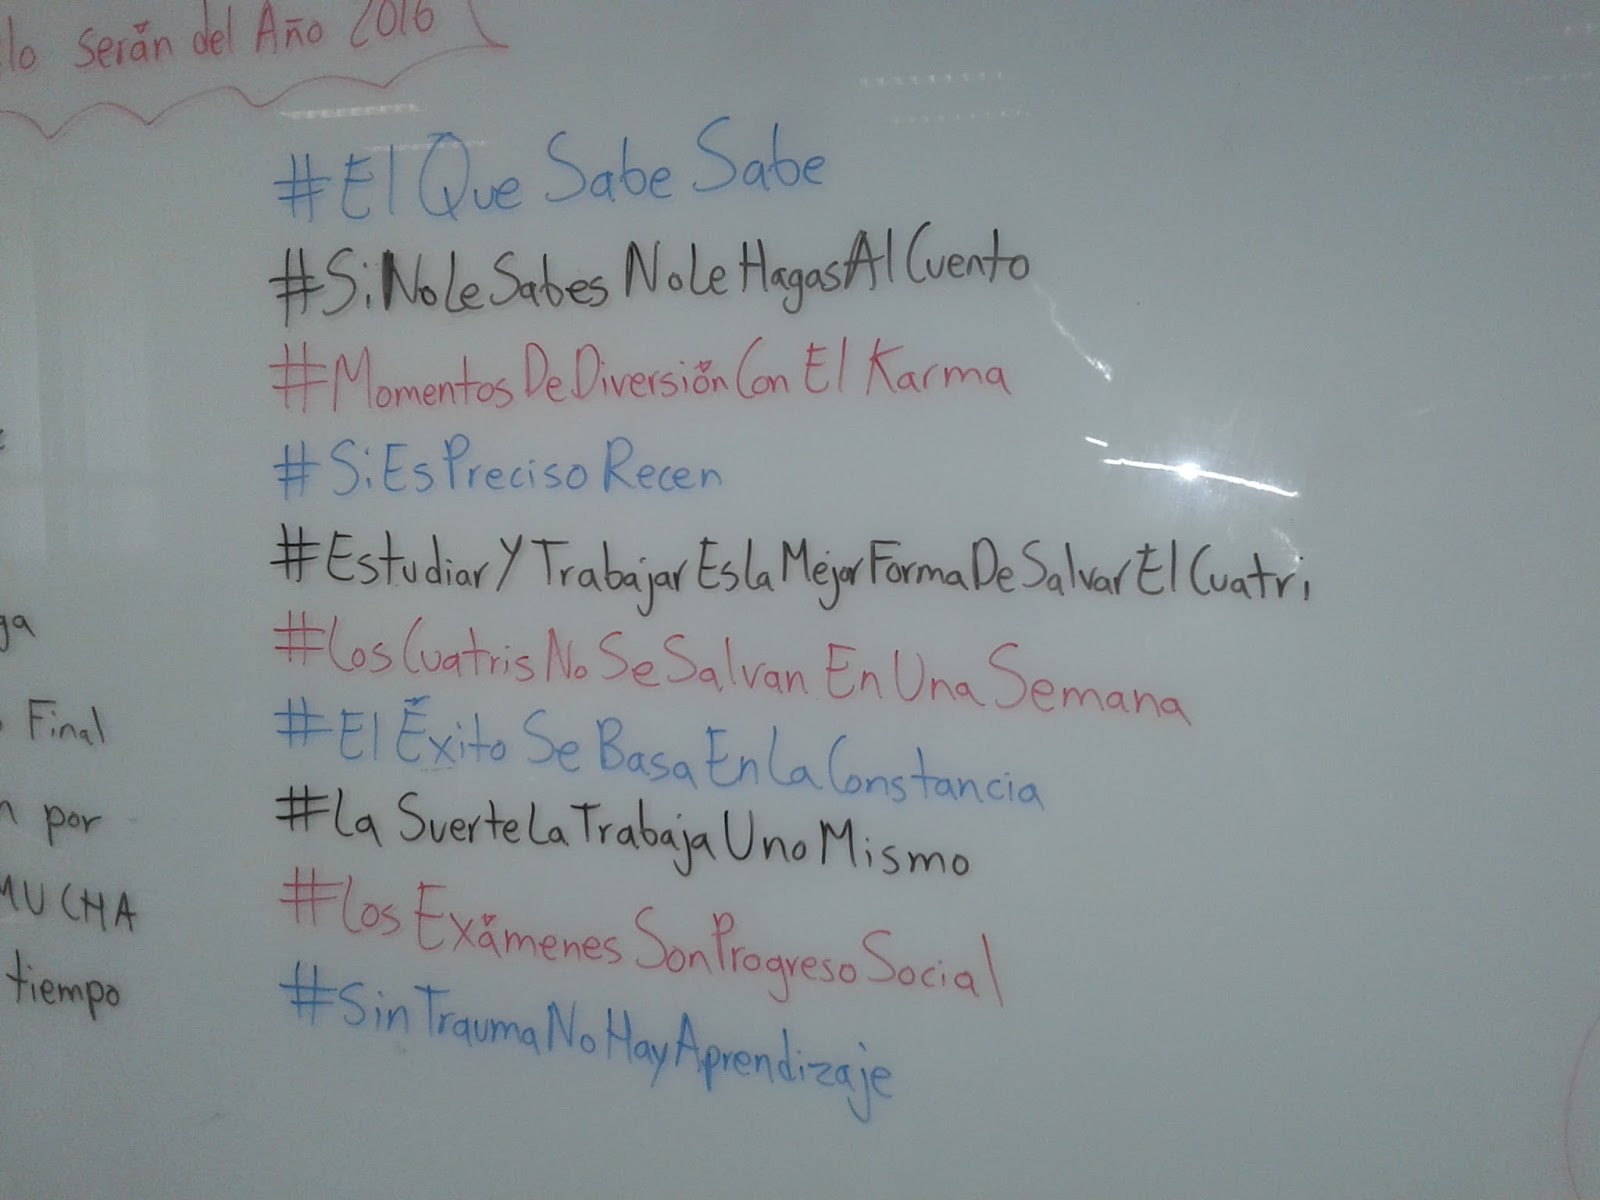 lo serán del Año 2016
#El Que Sabe Sabe
#SiNoLeSabes NoLeHagasAlCuento
#MomentosDeDiversiónConElKarma
#SiEsPrecisoRecen
#EstudiarYTrabajarEsLaMejorFormaDeSalvarElCuatri
#LosCuatrisNoSeSalvanEnUnaSemana
#ElÉxitoSeBasaEnLaConstancia
#LaSuerteLaTrabajaUnoMismo
#LosExámenesSonProgresoSocial
#SinTraumaNoHayAprendizaje
Final
por
MUCHA
tiempo